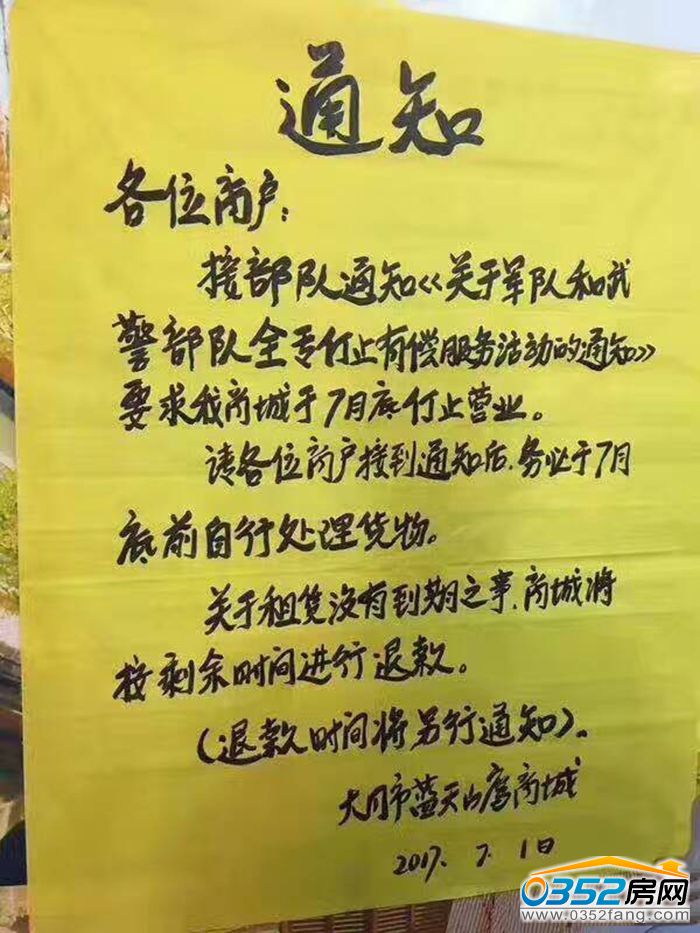 通知
各位商户：
接部队通知《关于军队和武
警部队全专仃止有偿服务活动的通知》
要求我商城于7月底仃止营业。
请各位商户接到通知后、务必于7月
底前自行处理货物。
关于租赁没有到期之事、商城将
按剩余时间进行退款。
（退款时间将另行通知）。
大同市蓝天山鹰商城
2017. 7. 1日
0352房网
www.0352fang.com